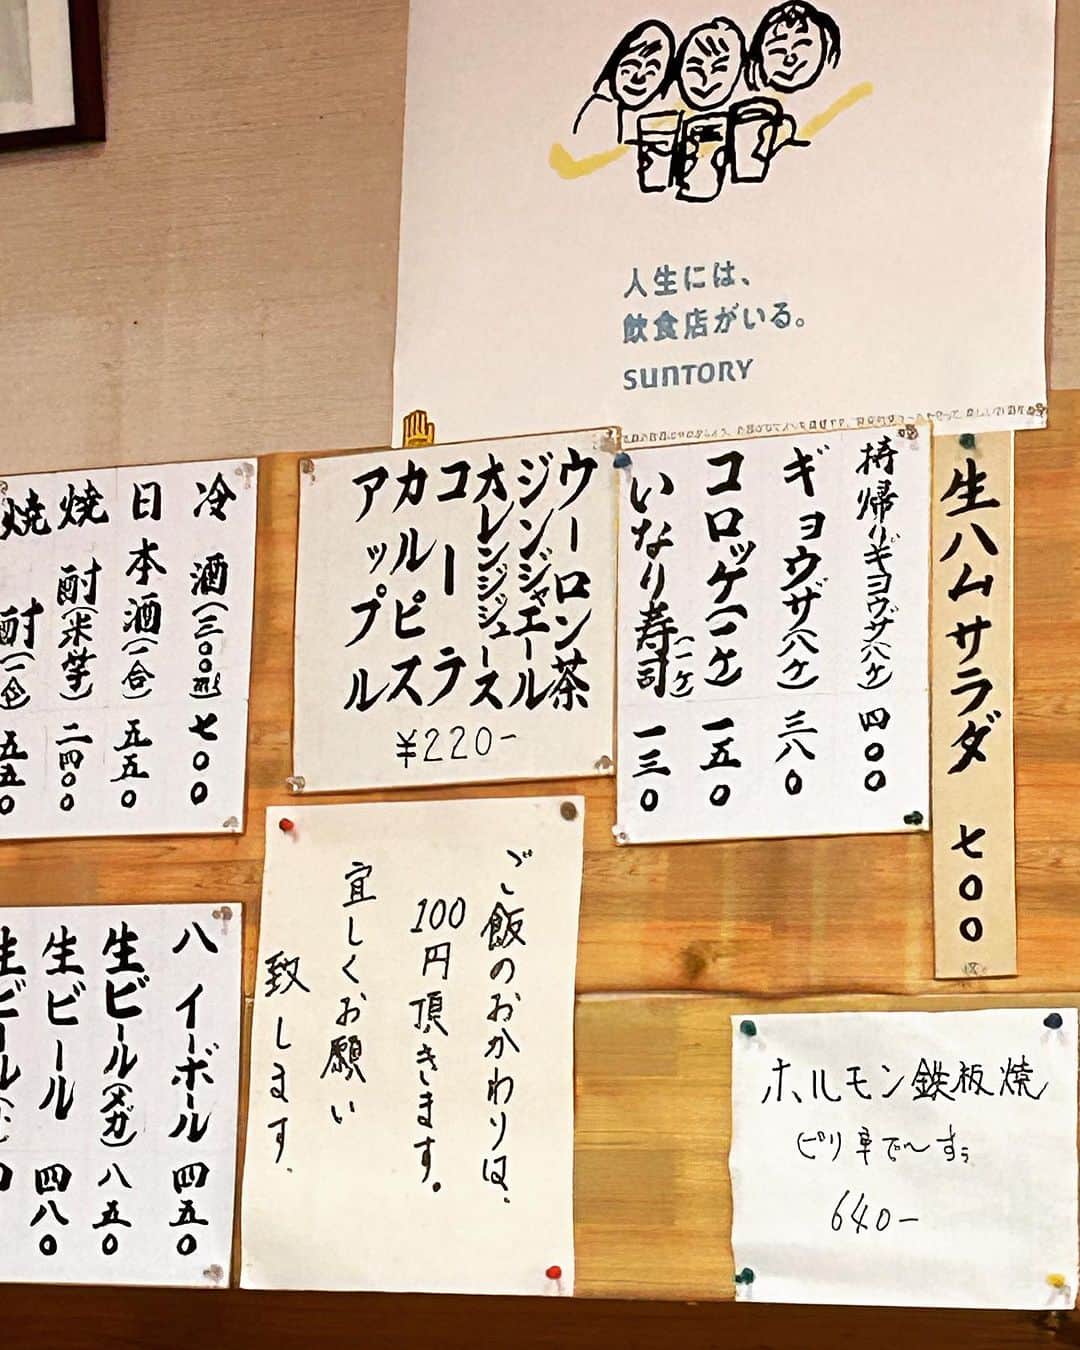 人生には、
飲食店がいる。
SUNTORY
生ハムサラダ 七〇〇
持帰りギョウザ(八ケ) 四〇〇
ギョウザ(八ケ) 三八〇
コロッケ(一ケ) 一五〇
いなり寿司(一ケ) 一三〇
ウーロン茶
ジンジャエール
オレンジジュース
コーラ
カルピス
アップル
¥220-
冷酒(三〇〇ml) 七〇〇
日本酒(一合) 五五〇
焼酎(米芋) 二四〇〇
焼酎(一合) 五五〇
ハイボール 四五〇
生ビール(メガ) 八五〇
生ビール 四八〇
生ビール
ご飯のおかわりは、
100円頂きます。
宜しくお願い
致します。
ホルモン鉄板焼
ピリ辛で〜すぅ
640-